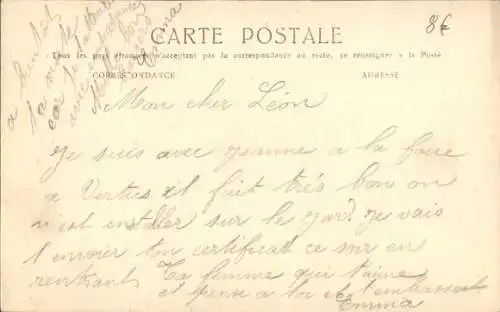 CARTE POSTALE
8€
Tous les pays étrangers n'acceptant pas la correspondance au recto, se renseigner à la Poste
CORRESPONDANCE
ADRESSE
Mon cher Léon
Je suis avec Jeanne a la foire
a Vertus il fiet trés bon on
n'est enstller sur le Jard. Je vais
t'envoier ton certificat ce soir en
rentrant Ta femme qui t'aime
et pense a toi et t'embrasse
Emma
a
la
car